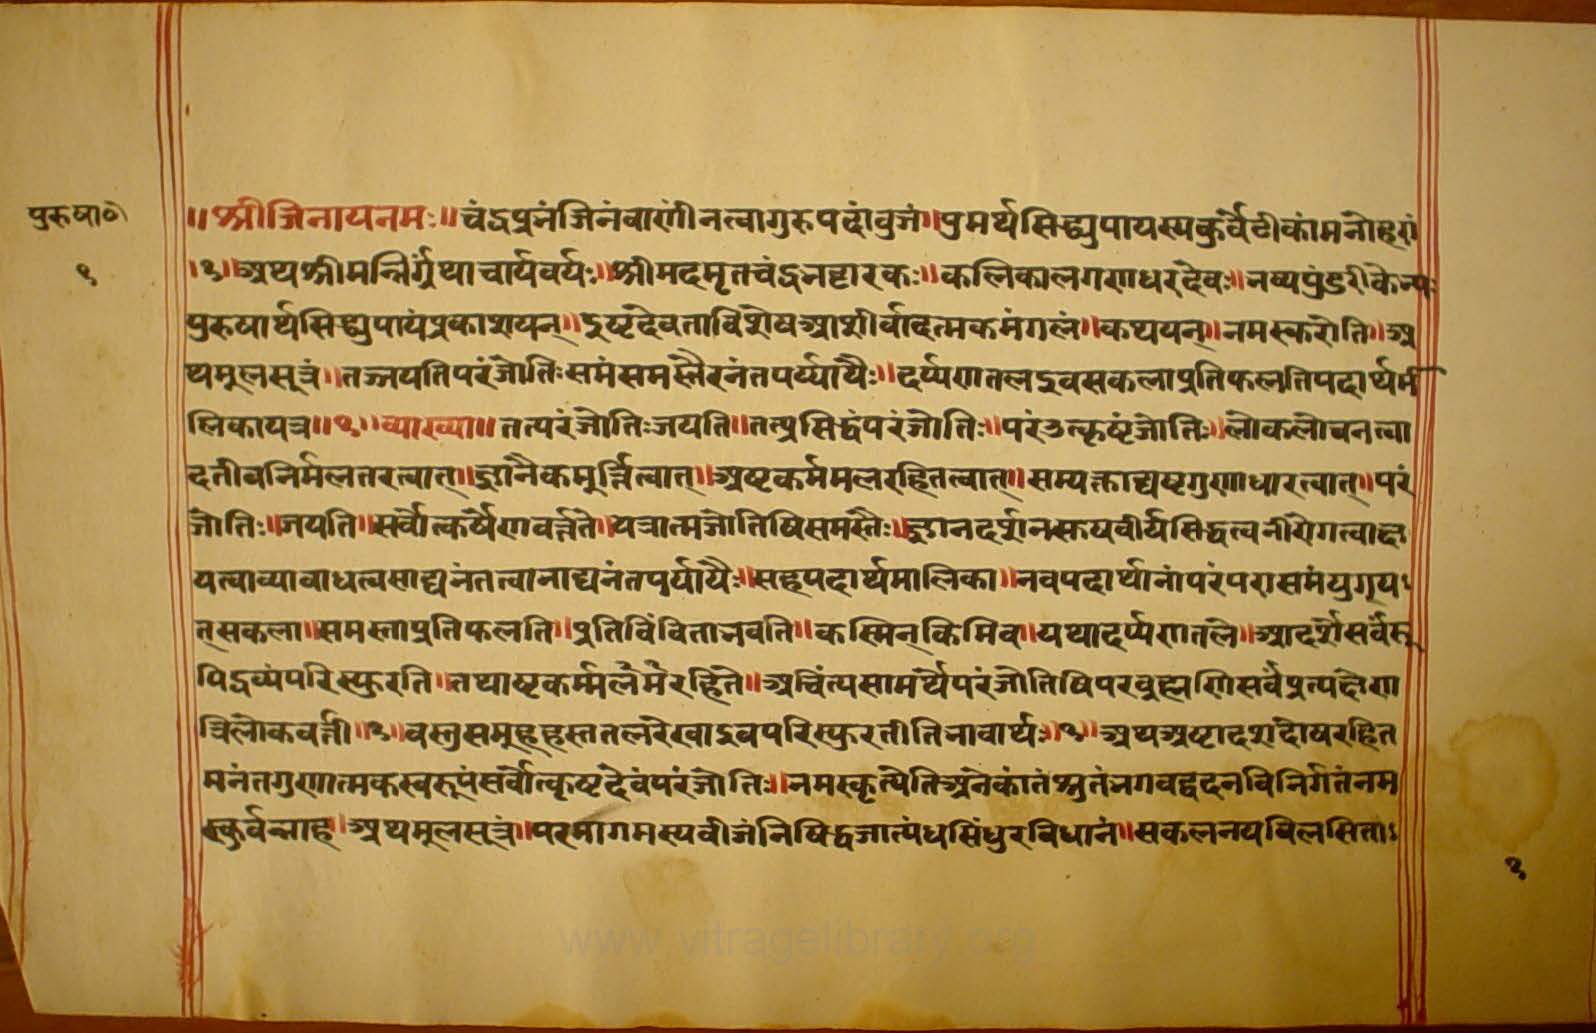 पुरुषाठी
१
॥श्रीजिनायनमः॥चंद्रप्रभंजिनंवाणींनत्वागुरुपदांबुजं॥पुमर्थसिद्ध्युपायस्यकुर्वेटीकांमनोहरां
।१॥अथश्रीमन्निर्ग्रंथाचार्यवर्यः॥श्रीमदमृतचंद्रभट्टारकः॥कलिकालगणधरदेवः॥भव्यपुंडरीकेभ्यः
पुरुषार्थसिद्ध्युपायंप्रकाशयन्॥इष्टदेवताविशेषआशीर्वादत्मकमंगलं॥कथयन्॥नमस्करोति॥अ
थमूलसूत्रं॥तज्जयतिपरंज्योतिःसमंसमस्तैरनंतपर्य्यायैः॥दर्प्पणतलइवसकलाप्रतिफलतिपदार्थमा
लिकायत्र॥१॥व्याख्या॥तत्परंज्योतिःजयति॥तत्प्रसिद्धंपरंज्योतिः॥परंउत्कृष्टंज्योतिः॥लोकलोचनत्वा
दतीवनिर्मलतरत्वात्॥ज्ञानैकमूर्त्तित्वात्॥अष्टकर्ममलरहितत्वात्॥सम्यक्ताद्यष्टगुणाधारत्वात्॥परं
ज्योतिः॥जयति॥सर्वोत्कर्षेणवर्त्तते॥यत्रात्मज्योतिषिसमस्तैः॥ज्ञानदर्शनसूक्ष्मवीर्यसिद्धत्वनीरोगत्वाक्ष
यत्वाव्याबाधत्वसाद्यनंतत्वानाद्यनंतपर्यायैः॥सहपदार्थमालिका॥नवपदार्थानांपरंपरासमंयुगप
त्सकला॥समस्ताप्रतिफलति॥प्रतिबिंबिताभवति॥कस्मिन्किमिव॥यथादर्प्पणतले॥आदर्शेसर्वरू
पिद्रव्यंपरिस्फुरति॥तथाष्टकर्म्ममलैर्मेरहिते॥अचिंत्यसामर्थेपरंज्योतिषिपरब्रह्मणिसर्वंप्रत्यक्षेण
त्रिलोकवर्त्ती॥१॥वस्तुसमूहहस्ततलरेखाइवपरिस्फुरतीतिभावार्थः॥१॥अथअष्टादशदोषरहित
मनंतगुणात्मकस्वरूपंसर्वोत्कृष्टदेवंपरंज्योतिः॥नमस्कृत्येतिअनेकांतंश्रुतंभगवद्वदनविनिर्गतंनम
स्कुर्वन्नाह॥अथमूलसूत्रं॥परमागमस्यबीजंनिषिद्धजात्यंधसिंधुरविधानं॥सकलनयविलसिता
१
www.vitragelibrary.org